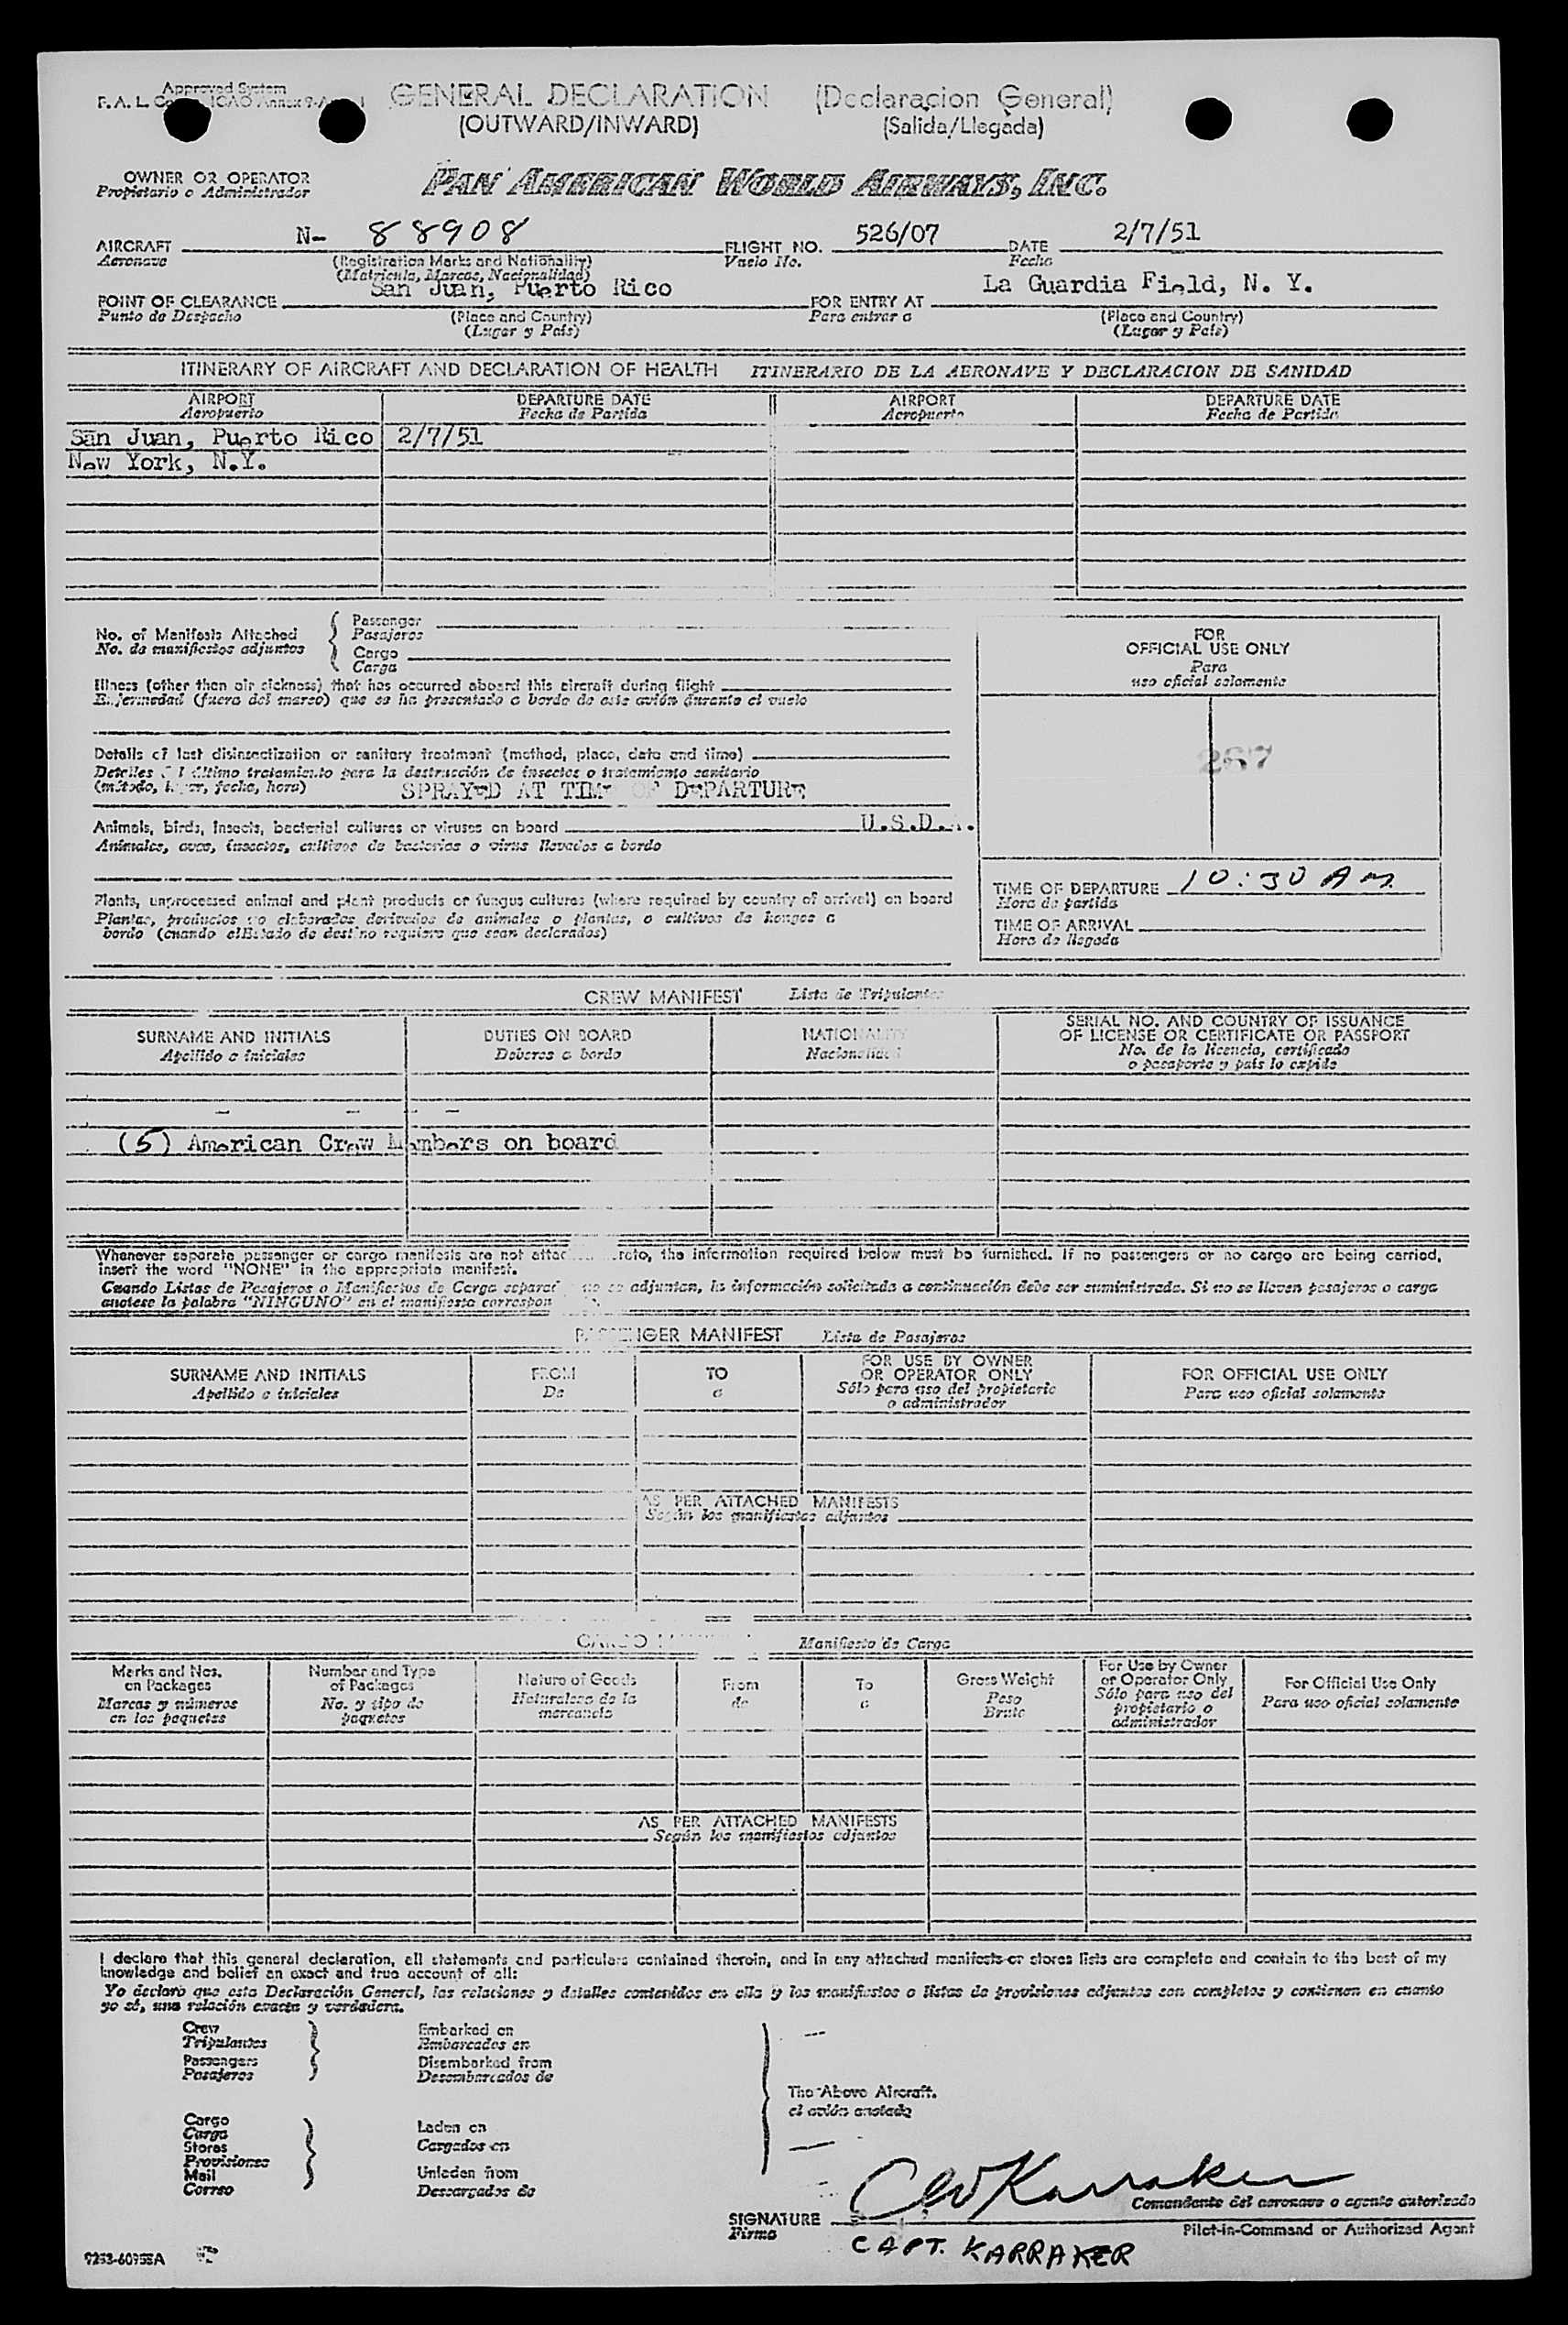 Approved System
F. A. L.
GENERAL DECLARATION (Declaracion General)
(OUTWARD/INWARD) (Salida/Llegada)
OWNER OR OPERATOR
Propietario o Administrador
PAN AMERICAN WORLD AIRWAYS, INC.
AIRCRAFT N- 88908 FLIGHT NO. 526/07 DATE 2/7/51
Aeronave (Registration Marks and Nationality) Vuelo No. Fecha
(Matricula, Marcas, Nacionalidad)
San Juan, Puerto Rico La Guardia Field, N. Y.
POINT OF CLEARANCE FOR ENTRY AT
Punto de Despacho (Place and Country) Para entrar a (Place and Country)
(Lugar y País) (Lugar y País)
ITINERARY OF AIRCRAFT AND DECLARATION OF HEALTH ITINERARIO DE LA AERONAVE Y DECLARACION DE SANIDAD
AIRPORT DEPARTURE DATE AIRPORT DEPARTURE DATE
Aeropuerto Fecha de Partida Aeropuerto Fecha de Partida
San Juan, Puerto Rico 2/7/51
New York, N.Y.
No. of Manifests Attached
No. de manifiestos adjuntos
Passenger
Pasajeros
Cargo
Carga
FOR
OFFICIAL USE ONLY
Para
uso oficial solamente
267
Illness (other than air sickness) that has occurred aboard this aircraft during flight
Enfermedad (fuera del mareo) que se ha presentado a bordo de este avión durante el vuelo
Details of last disinsectization or sanitary treatment (method, place, date and time)
Detalles último tratamiento para la destrucción de insectos o tratamiento sanitario
(método, lugar, fecha, hora) SPRAYED AT TIME OF DEPARTURE
Animals, birds, insects, bacterial cultures or viruses on board U.S.D.A.
Animales, aves, insectos, cultivos de bacterias o virus llevados a bordo
Plants, unprocessed animal and plant products or fungus cultures (where required by country of arrival) on board
Plantas, productos no elaborados derivados de animales o plantas, o cultivos de hongos a
bordo (cuando el Estado de destino requiere que sean declarados)
TIME OF DEPARTURE 10:30 AM
Hora de partida
TIME OF ARRIVAL
Hora de llegada
CREW MANIFEST Lista de Tripulantes
SURNAME AND INITIALS DUTIES ON BOARD NATIONALITY SERIAL NO. AND COUNTRY OF ISSUANCE
OF LICENSE OR CERTIFICATE OR PASSPORT
Apellido e iniciales Deberes a bordo Nacionalidad No. de la licencia, certificado
o pasaporte y país lo expide
(5) American Crew Members on board
Whenever separate passenger or cargo manifests are not attac reto, the information required below must be furnished. If no passengers or no cargo are being carried,
insert the word "NONE" in the appropriate manifest.
Cuando Listas de Pasajeros o Manifiestos de Carga separad no se adjuntan, la información solicitada a continuación debe ser suministrada. Si no se lleven pasajeros o carga
anotese la palabra "NINGUNO" en el manifiesto correspon
PASSENGER MANIFEST Lista de Pasajeros
SURNAME AND INITIALS FROM TO FOR USE BY OWNER
OR OPERATOR ONLY FOR OFFICIAL USE ONLY
Apellido e iniciales De a Sólo para uso del propietario
o administrador Para uso oficial solamente
AS PER ATTACHED MANIFESTS
Según los manifiestos adjuntos
CARGO Manifiesto de Carga
Marks and Nos.
on Packages
Marcas y números
en los paquetes
Number and Type
of Packages
No. y tipo de
paquetes
Nature of Goods
Naturaleza de la
mercancía
From
de
To
a
Gross Weight
Peso
Bruto
For Use by Owner
or Operator Only
Sólo para uso del
propietario o
administrador
For Official Use Only
Para uso oficial solamente
AS PER ATTACHED MANIFESTS
Según los manifiestos adjuntos
I declare that this general declaration, all statements and particulars contained therein, and in any attached manifests or stores lists are complete and contain to the best of my
knowledge and belief an exact and true account of all:
Yo declaro que esta Declaración General, las relaciones y detalles contenidos en ella y los manifiestos o listas de provisiones adjuntos son completos y contienen en cuanto
yo sé, una relación exacta y verdadera.
Crew
Tripulantes
Passengers
Pasajeros
Embarked on
Embarcados en
Disembarked from
Desembarcados de
The Above Aircraft.
el avión anotado
Cargo
Carga
Stores
Provisiones
Mail
Correo
Laden on
Cargados en
Unladen from
Descargados de
CW Karraker
Comandante del aeronave o agente autorizado
SIGNATURE
Firma
Pilot-in-Command or Authorized Agent
CAPT. KARRAKER
9253-60955A